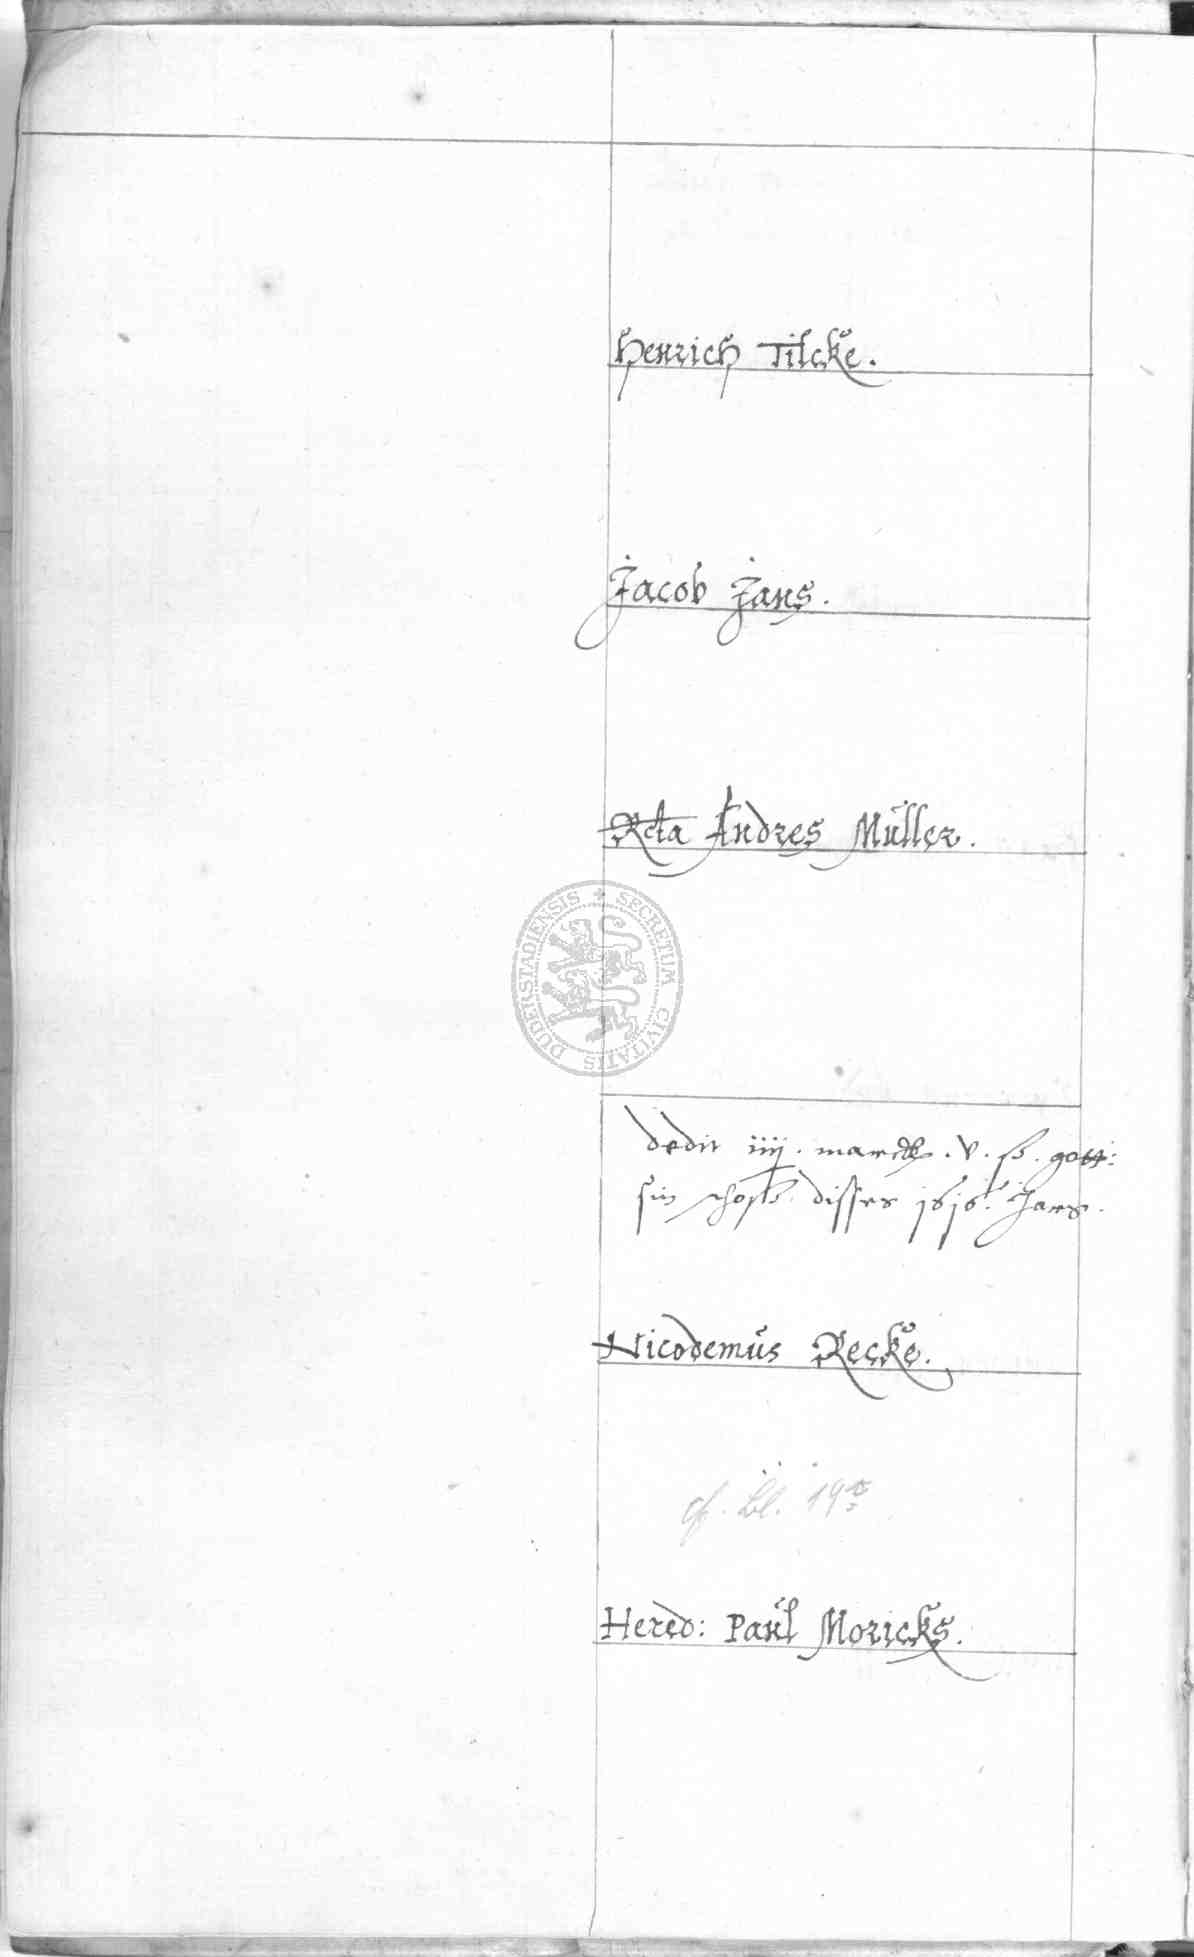 Henrich Tilcke.
Jacob Jans.
Rcta Andres Müller.
SECRETUM CIVITATIS DUDERSTADIENSIS
dedit iiij. marck. v. ß. gott:
sin schoß disser 1616. Jars.
Nicodemus Recke.
cf. Bl. 19
Hered: Paul Moricks.